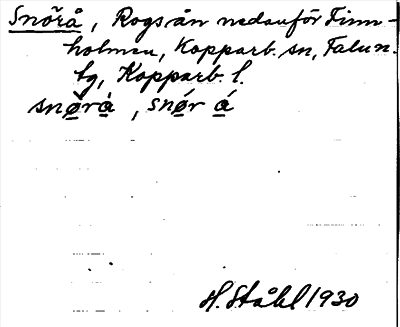 Snörå, Rogsån nedanför Finn-
holmen, Kopparb. sn, Falun.
tg, Kopparb. l.
snø̀rà, snǿr á
H. Ståhl 1930